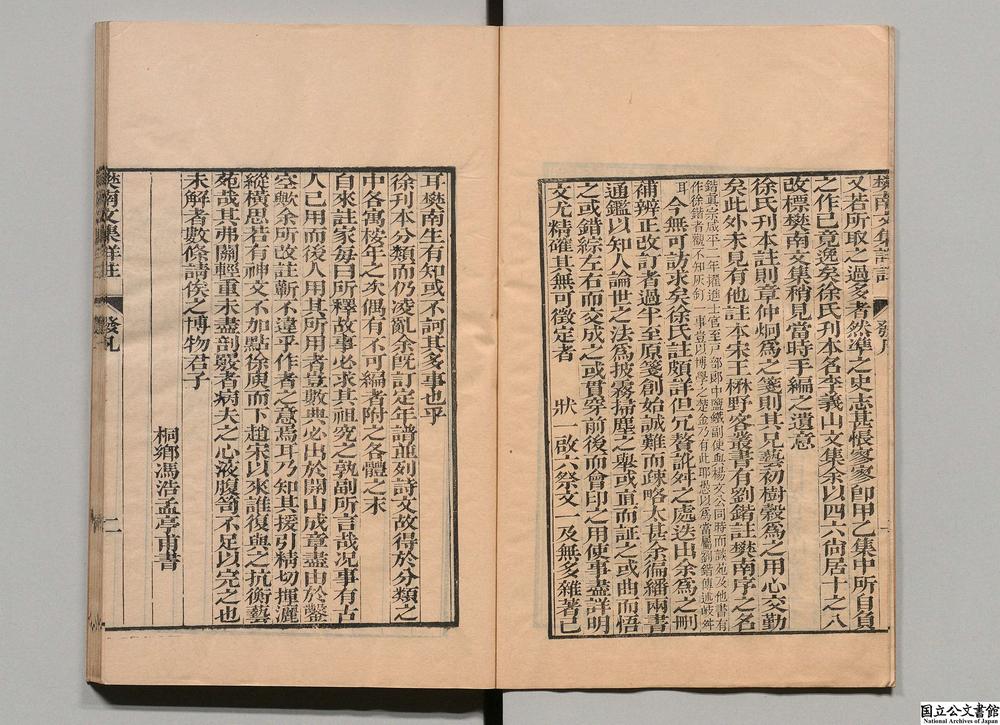 又若所取之過多者然準之史志甚悵寥寥即甲乙集中所自負
之作已竟逸矣徐氏刊本名李義山文集余以四六尚居十之八
改標樊南文集稍見當時手編之遺意
徐氏刊本註則章仲炯爲之箋則其兄藝初樹穀爲之用心交勤
矣此外未見有他註本宋王楙野客叢書有劉鍇註樊南序之名
鍇眞宗咸平二年擢進士官至戸部郎中鹽鐵副使與楊文公同時而談苑及他書有
作徐鍇者觀不知灰釘一事豈以博學之楚金乃有此耶愚以爲當屬劉鍇傳述歧舛
耳今無可訪求矣徐氏註頗詳但冗聱訛舛之處迭出余爲之刪
補辨正改訂者過半至原箋創始誠難而疎略太甚余徧繙兩書
通鑑以知人論世之法爲披霧掃塵之舉或直而証之或曲而悟
之或錯綜左右而交成之或貫穿前後而會印之用使事盡詳明
文尤精確其無可徵定者 狀一啟六祭文一及無多雜著已
耳樊南生有知或不訶其多事也乎
徐刊本分類而仍凌亂余旣訂定年譜並列詩文故得於分類之
中各寓按年之次偶有不可編者附之各體之末
自來註家每曰所釋故事必求其祖究之孰副所言哉况事有古
人已用而後人用其所用者豈數典必出於開山成章盡由於鑿
空歟余所改註靳不違乎作者之意焉耳乃知其援引精切揮灑
縱橫思若有神文不加點徐庾而下趙宋以來誰復與之抗衡藝
苑哉其弗關輕重未盡剖覈者病夫之心液腹笥不足以完之也
未解者數條請俟之博物君子
桐鄉馮浩孟亭甫書
樊南文集詳註
發凡
二
国立公文書館
National Archives of Japan